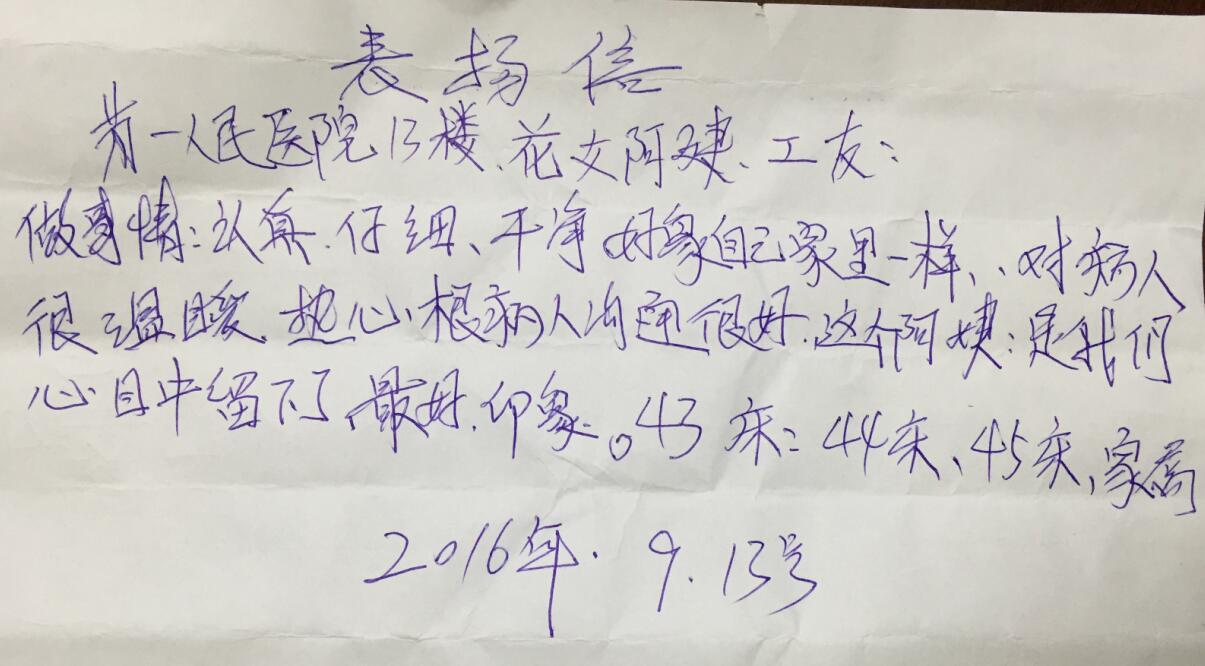 表扬信
第一人民医院13楼、花文阿姨、工友:
做事情:认真、仔细、干净 好象自己家里一样、、对病人
很温暖、热心、根病人沟通很好、这个阿姨:是我们
心目中留下了、最好、印象。43床:44床、45床、家属
2016年. 9.13号